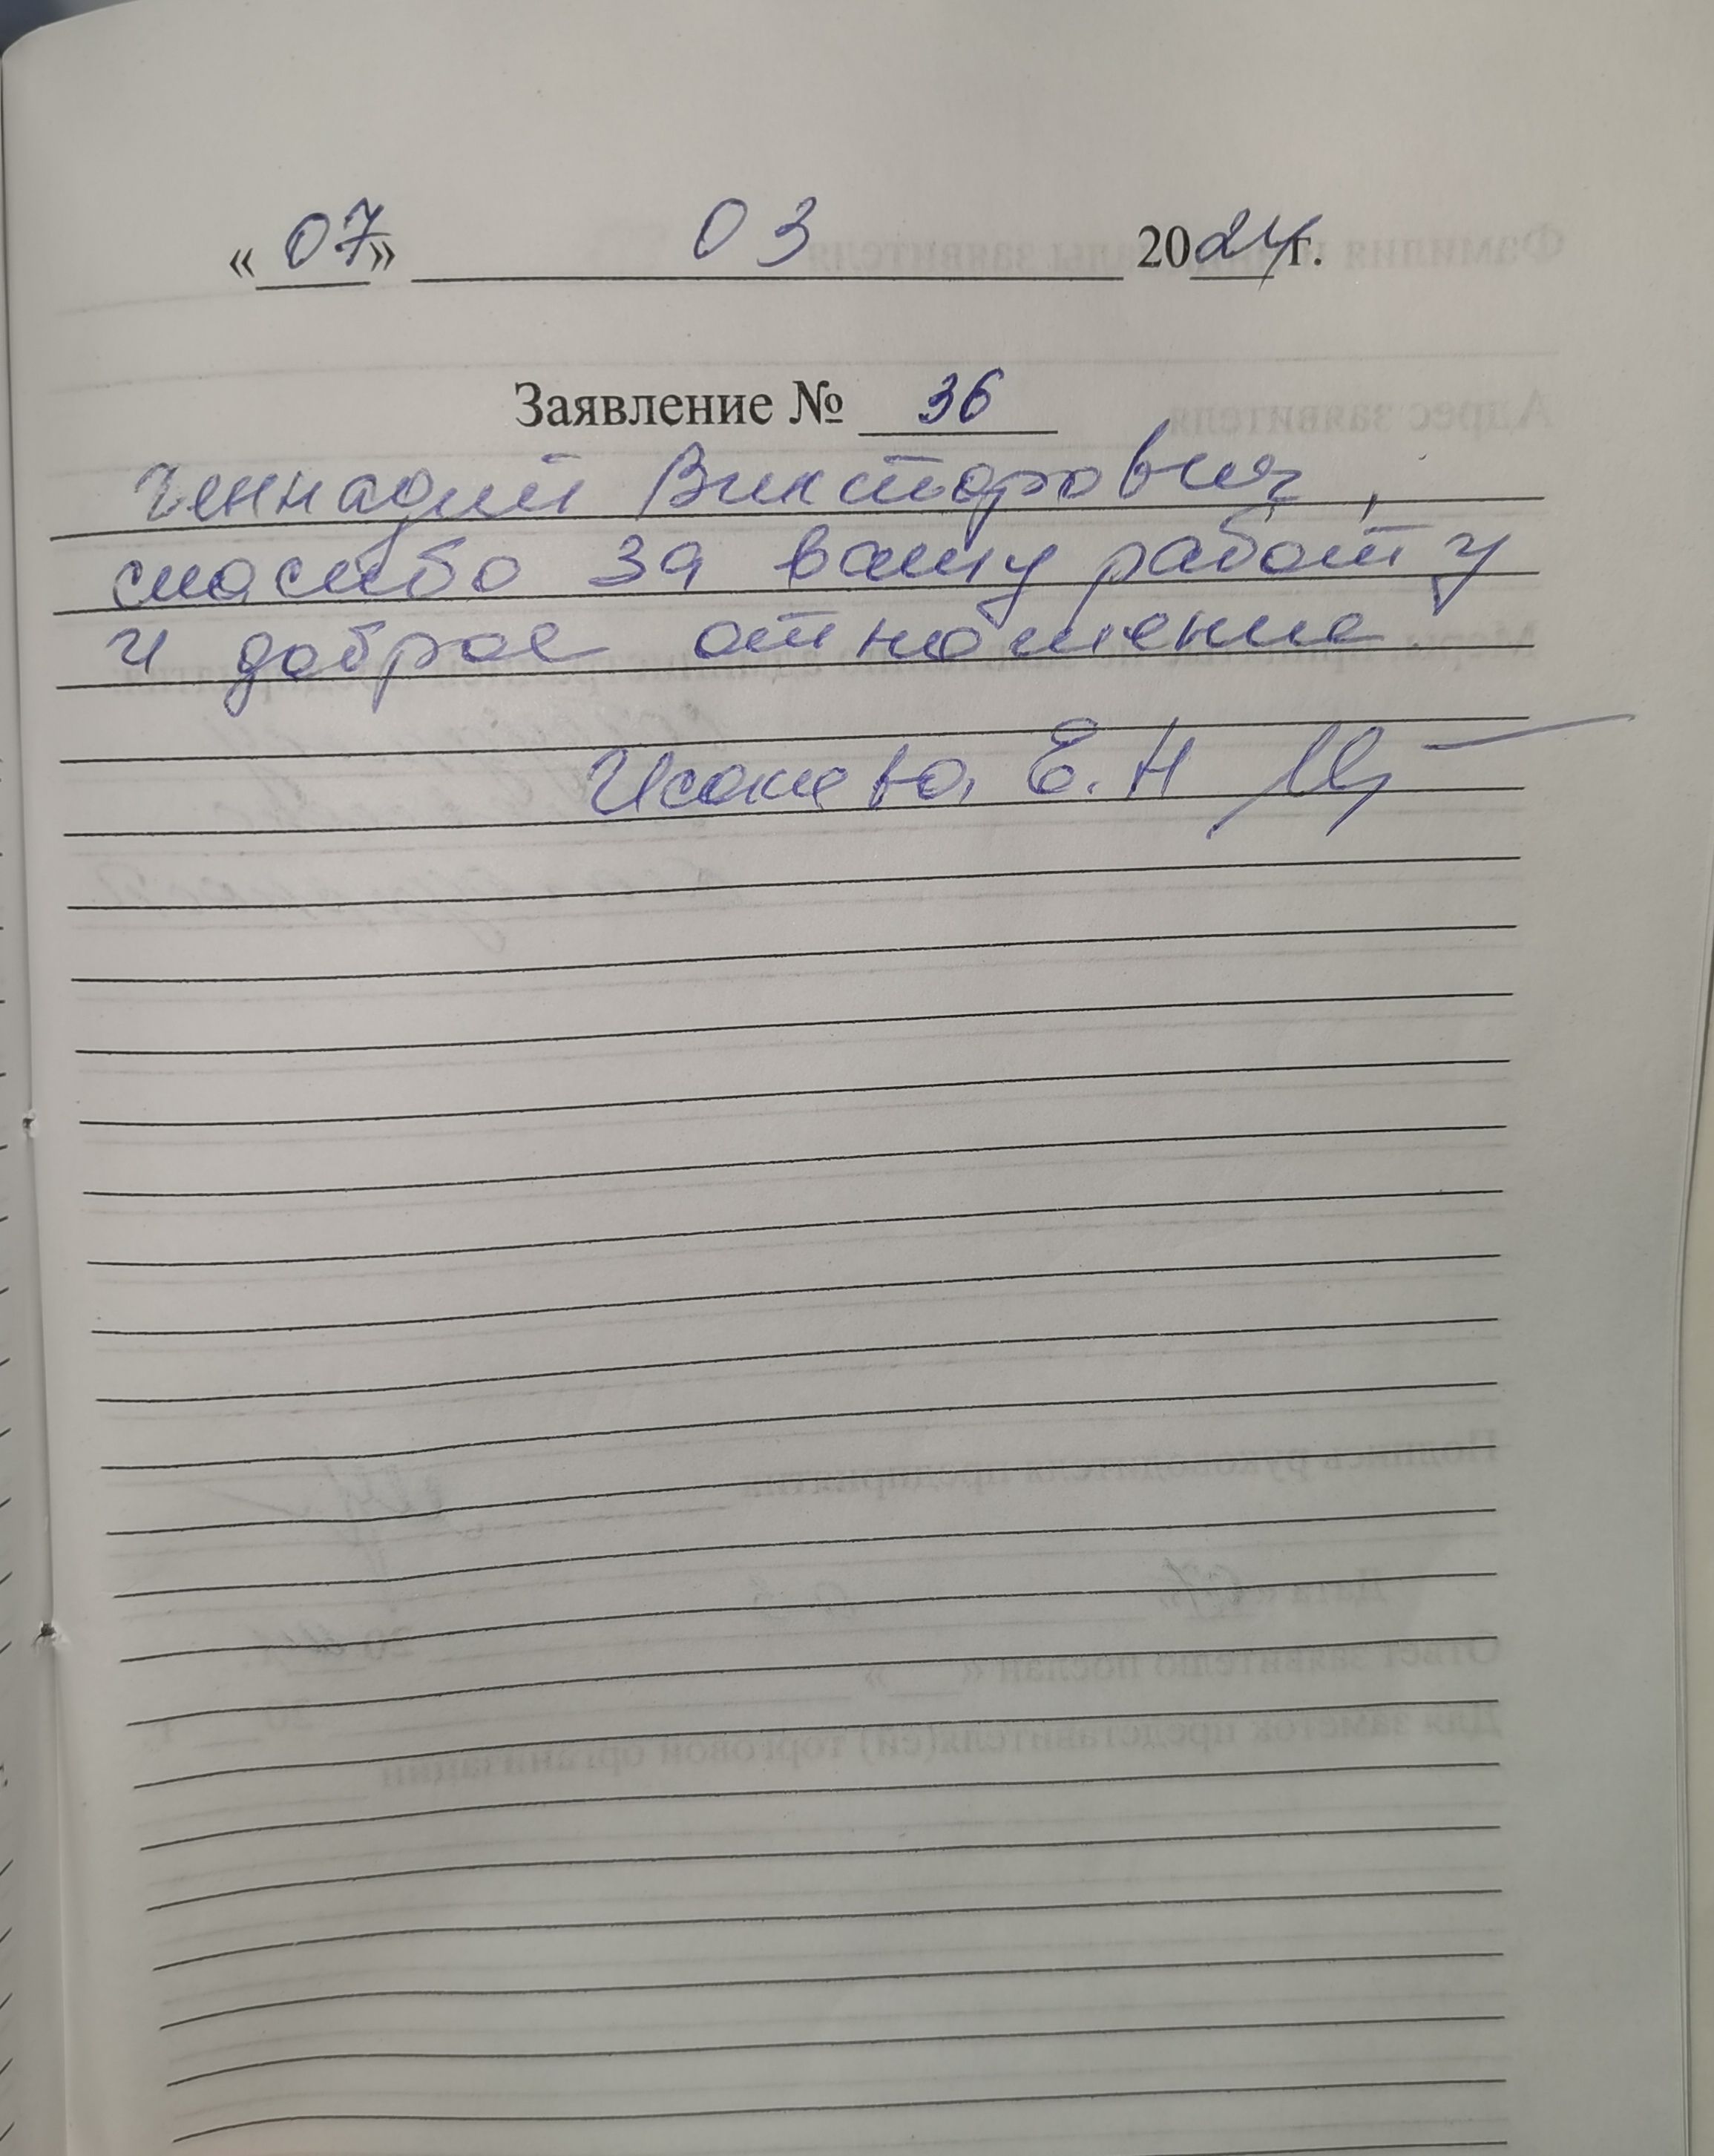 «07» 03 2024г.
Заявление № 36
Геннадий Викторович,
спасибо за вашу работу
и доброе отношение
Е.Н